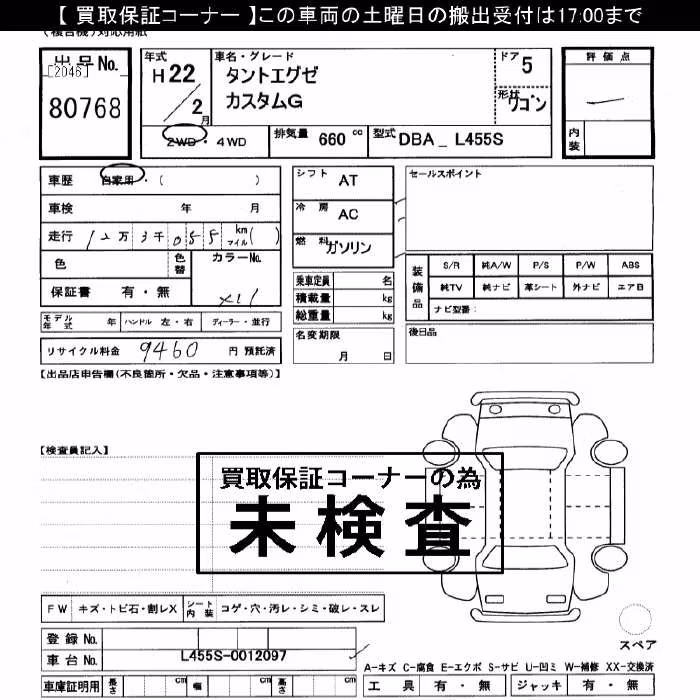 【 買取保証コーナー 】この車両の土曜日の搬出受付は17:00まで
(複合機)対応用紙
出品No. [2046] 80768
年式 H22/2月
車名・グレード タントエグゼ カスタムG
ドア 5
形状 ワゴン
評価点
内装
2WD・4WD
排気量 660 cc
型式 DBA_ L455S
車歴 自家用・( )
車検 年 月
走行 12万3千055 km マイル( )
色 色替 カラーNo. X11
保証書 有・無
モデル年式 年 ハンドル 左・右 ディーラー・並行
リサイクル料金 9460 円 預託済
シフト AT
冷房 AC
燃料 ガソリン
乗車定員 名
積載量 kg
総重量 kg
名変期限 月 日
セールスポイント
装備品 S/R 純A/W P/S P/W ABS
純TV 純ナビ 革シート 外ナビ エアB
ナビ型番:
後日品
【出品店申告欄(不良箇所・欠品・注意事項等)】
【検査員記入】
買取保証コーナーの為
未検査
FW キズ・トビ石・割レX シート内装 コゲ・穴・汚レ・シミ・破レ・スレ
登録No.
車台No. L455S-0012097
車庫証明用 長さ cm 幅 cm 高さ cm
スペア
A-キズ C-腐食 E-エクボ S-サビ U-凹ミ W-補修 XX-交換済
工具 有・無 ジャッキ 有・無